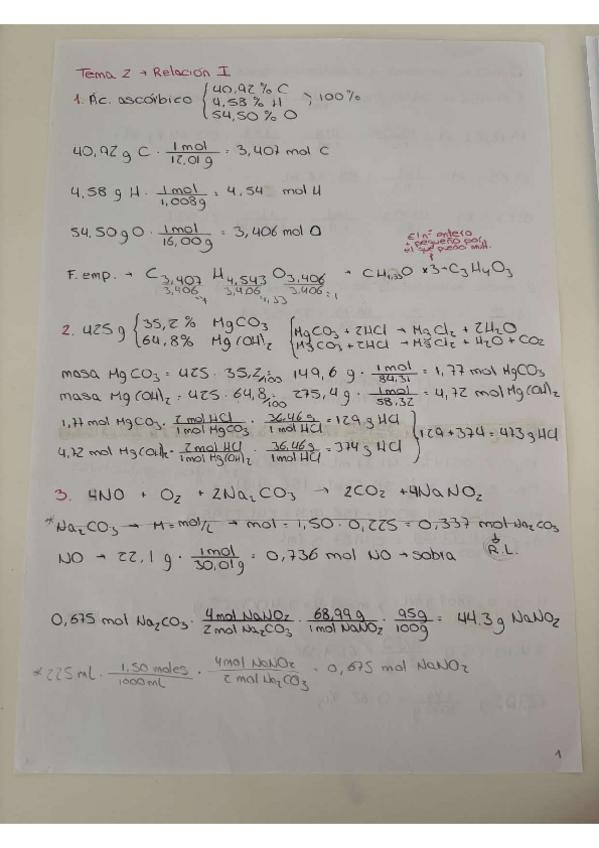 Tema 2 → Relación I
1. Ác. ascórbico { 40,92 % C
4,58 % H } 100%
54,50 % O
40,92 g C · 1 mol / 12,01 g = 3,407 mol C
4,58 g H · 1 mol / 1,008 g = 4,54 mol H
54,50 g O · 1 mol / 16,00 g = 3,406 mol O
El nº entero
+ pequeño por
el que puedo mult.
F. emp. → C 3,407/3,406 = 1 H 4,543/3,406 = 1,33 O 3,406/3,406 = 1 → CH1,33O x3 → C3H4O3
2. 425 g { 35,2 % MgCO3 { MgCO3 + 2HCl → MgCl2 + 2H2O
64,8% Mg(OH)2 MgCO3 + 2HCl → MgCl2 + H2O + CO2
masa MgCO3 = 425 · 35,2/100 = 149,6 g · 1 mol / 84,31 = 1,77 mol MgCO3
masa Mg(OH)2 = 425 · 64,8/100 = 275,4 g · 1 mol / 58,32 = 4,72 mol Mg(OH)2
1,77 mol MgCO3 · 2 mol HCl / 1 mol MgCO3 · 36,46 g / 1 mol HCl = 129 g HCl } 129 + 374 = 473 g HCl
4,72 mol Mg(OH)2 · 2 mol HCl / 1 mol Mg(OH)2 · 36,46 g / 1 mol HCl = 374 g HCl
3. 4NO + O2 + 2Na2CO3 → 2CO2 + 4NaNO2
*Na2CO3 → M = mol/L → mol = 1,50 · 0,225 = 0,337 mol Na2CO3
NO → 22,1 g · 1 mol / 30,01 g = 0,736 mol NO → sobra R.L.
0,675 mol Na2CO3 · 4 mol NaNO2 / 2 mol Na2CO3 · 68,99 g / 1 mol NaNO2 · 95 g / 100 g = 44.3 g NaNO2
*225 mL · 1,50 moles / 1000 mL · 4 mol NaNO2 / 2 mol Na2CO3 = 0,675 mol NaNO2
1